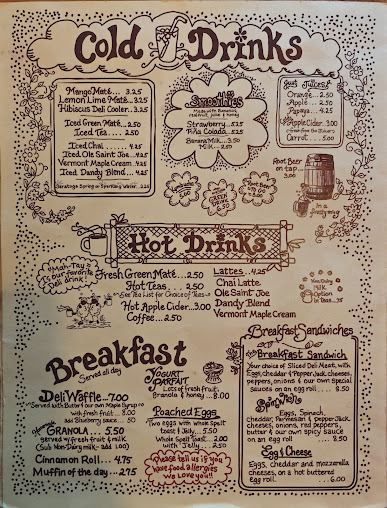 Cold Drinks
Mango Maté.... 3.25
Lemon Lime Maté... 3.25
Hibiscus Deli Cooler.. 3.25
Iced Green Maté... 2.50
Iced Tea.... 2.50
Iced Chai....... 4.25
Iced Ole Saint Joe... 4.25
Vermont Maple Cream. 4.25
Iced Dandy Blend... 4.25
Saratoga Spring or Sparkling Water.. 3.25
Smoothies
Made with Bananas,
Strawberry...5.25
Piña Colada..5.25
Banana Milk..
Milk...
Juices
Orange...2.50
Apple ...2.50
Papaya...
Apple Cider..3.00
Carrot.....5.00
Root Beer
on tap...
3.00
in a
frosty mug
Hot Drinks
"Mah-Tay"
it's our favorite
Deli drink!
Fresh Green Maté.... 2.50
Hot Teas.... 2.50
See Tea List for Choice of Teas
Hot Apple Cider...3.00
Coffee....2.50
Lattes...4.25
Chai Latte
Ole Saint Joe
Dandy Blend
Vermont Maple Cream
Non Dairy
Milk
Option
Breakfast
Served all day
Deli Waffle...7.00
Served with Butter & our own Maple Syrup
with fresh fruit... 8.00
add Blueberry sauce...50
Granola.... 5.50
served w/fresh fruit & milk
(Sub Non-Dairy milk- add 1.00)
Cinnamon Roll... 4.75
Muffin of the day...2.75
Yogurt
Parfait
Lots of fresh fruit,
Granola & honey... 8.00
Poached Eggs
Two eggs with whole Spelt
toast & Jelly.... 5.50
Whole Spelt Toast... 2.00
with Jelly... 2.50
Please tell us if you
have food allergies
We love you!!
Breakfast Sandwiches
Breakfast Sandwich
Your choice of Sliced Deli Meat, with
Eggs, cheddar & Pepper Jack cheeses,
peppers, onions & our own Special
Sauces on an egg roll ..... 8.50
Eggs, Spinach,
cheddar, Parmesan & Pepper Jack
cheeses, onions, red peppers,
butter & our own spicy sauce
on an egg roll ..... 8.50
Egg & Cheese
Eggs, cheddar and mozzarella
cheeses, on a hot buttered
egg roll........ 6.00